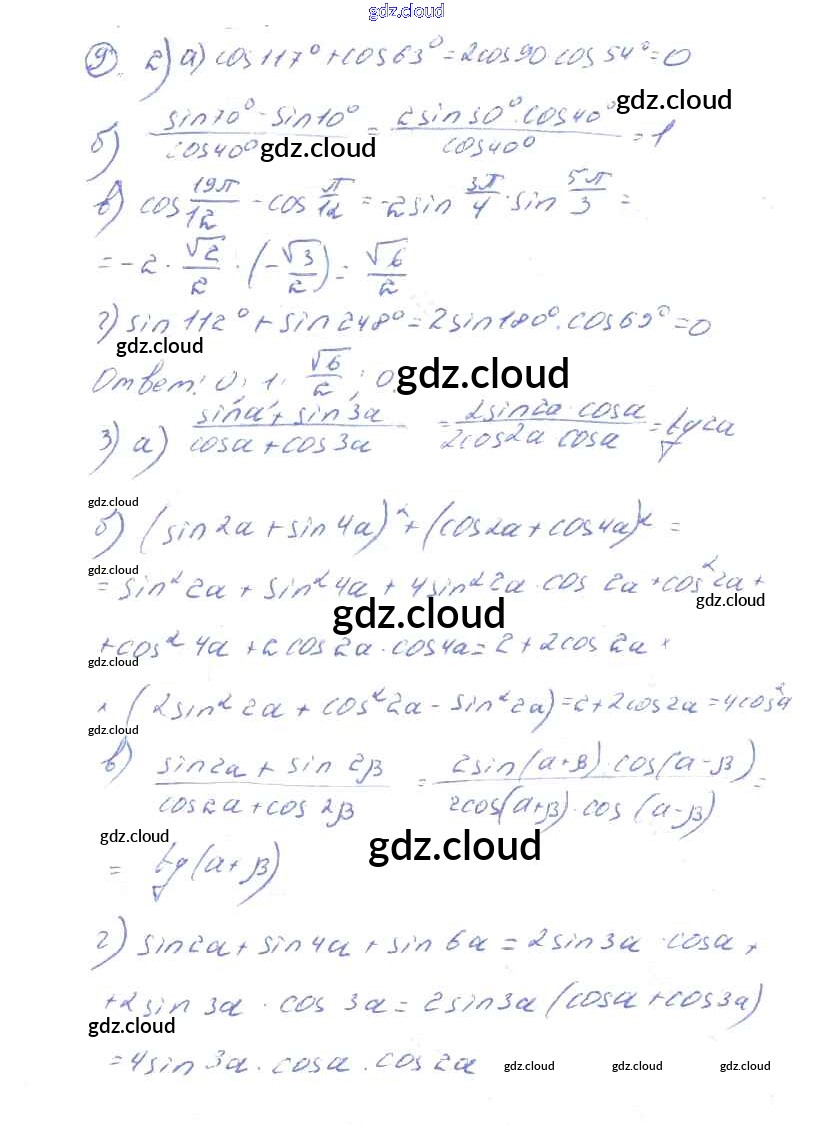 gdz.cloud
9) 2) а) cos 117° + cos 63° = 2cos 90 · cos 54° = 0
б) (sin 70° - sin 10°)/(cos 40°) = (2 sin 30° · cos 40°)/(cos 40°) = 1
gdz.cloud
gdz.cloud
в) cos 19π/12 - cos π/12 = -2 sin 3π/4 · sin 5π/3 =
= -2 · √2/2 · (-√3/2) = √6/2
г) sin 112° + sin 248° = 2 sin 180° · cos 69° = 0
gdz.cloud
Ответ: 0; 1; √6/2; 0.
gdz.cloud
3) а) (sin a + sin 3a)/(cos a + cos 3a) = (2 sin 2a · cos a)/(2cos 2a cos a) = tg 2a
gdz.cloud
б) (sin 2a + sin 4a)² + (cos 2a + cos 4a)² =
gdz.cloud
= sin² 2a + sin² 4a + 4 sin² 2a · cos 2a + cos² 2a +
gdz.cloud
gdz.cloud
+ cos² 4a + 2 cos 2a · cos 4a = 2 + 2cos 2a ×
gdz.cloud
× (2 sin² 2a + cos² 2a - sin² 2a) = 2 + 2cos 2a = 4cos² a
gdz.cloud
в) (sin 2a + sin 2β)/(cos 2a + cos 2β) = (2 sin(a+β) · cos(a-β))/(2cos(a+β) · cos(a-β)) =
gdz.cloud
gdz.cloud
= tg(a+β)
г) sin 2a + sin 4a + sin 6a = 2 sin 3a · cos a +
+ 2 sin 3a · cos 3a = 2 sin 3a (cos a + cos 3a)
gdz.cloud
= 4 sin 3a · cos a · cos 2a
gdz.cloud gdz.cloud gdz.cloud